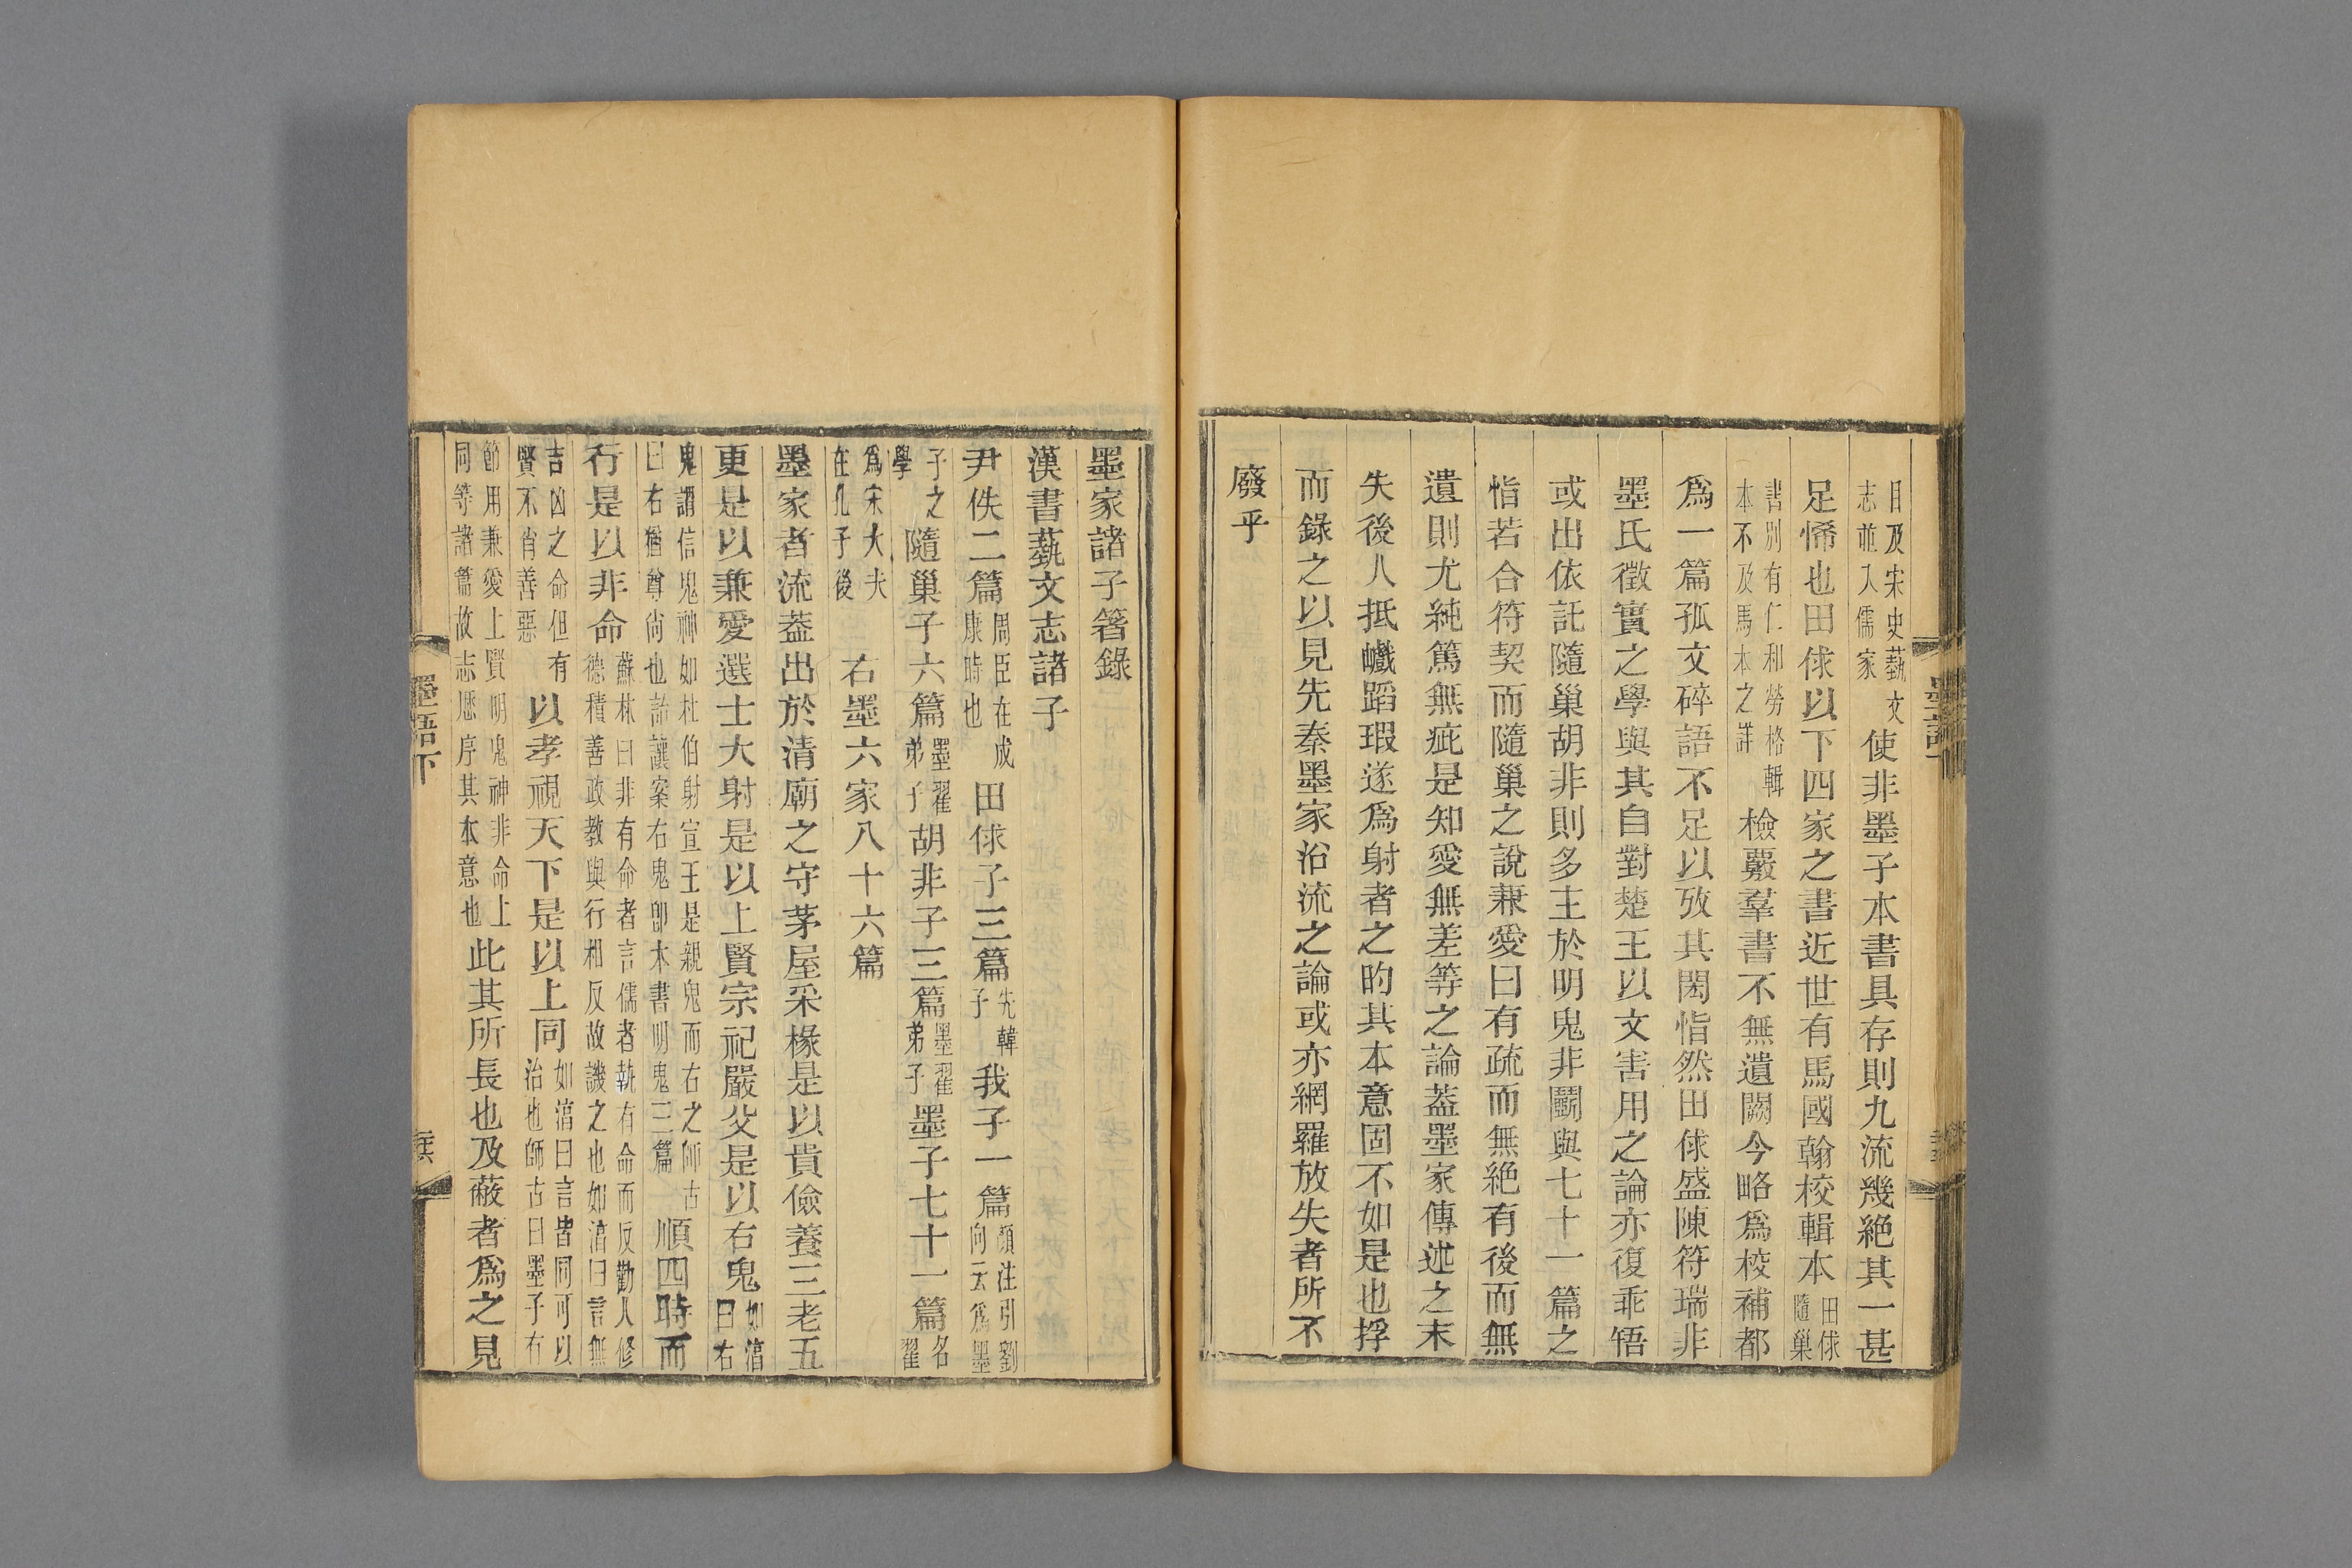 目及宋史藝文
志並入儒家
使非墨子本書具存則九流幾絕其一甚
足悕也田俅以下四家之書近世有馬國翰校輯本
田俅
隨巢
書別有仁和勞格輯
本不及馬本之詳
檢覈羣書不無遺闕今略爲校補都
爲一篇孤文碎語不足以攷其閎恉然田俅盛陳符瑞非
墨氏徵實之學與其自對楚王以文害用之論亦復乖啎
或出依託隨巢胡非則多主於明鬼非鬭與七十一篇之
恉若合符契而隨巢之說兼愛曰有疏而無絕有後而無
遺則尤純篤無疵是知愛無差等之論蓋墨家傳述之末
失後人抵巇蹈瑕遂爲射者之昀其本意固不如是也捊
而錄之以見先秦墨家沿流之論或亦網羅放失者所不
廢乎
墨家諸子箸錄
漢書藝文志諸子
尹佚二篇
周臣在成
康時也
田俅子三篇
先韓
子
我子一篇
顏注引劉
向云爲墨
子之
學
隨巢子六篇
墨翟
弟子
胡非子三篇
墨翟
弟子
墨子七十一篇
名
翟
爲宋大夫
在孔子後
右墨六家八十六篇
墨家者流蓋出於清廟之守茅屋采椽是以貴儉養三老五
更是以兼愛選士大射是以上賢宗祀嚴父是以右鬼
如淳
曰右
鬼謂信鬼神如杜伯射宣王是親鬼而右之師古
曰右猶尊尚也詒讓案右鬼卽本書明鬼三篇
順四時而
行是以非命
蘇林曰非有命者言儒者執有命而反勸人修
德積善政教與行相反故譏之也如淳曰言無
吉凶之命但有
賢不肖善惡
以孝視天下是以上同
如淳曰言皆同可以
治也師古曰墨子有
節用兼愛上賢明鬼神非命上
同等諸篇故志歷序其本意也
此其所長也及蔽者爲之見
墨語下